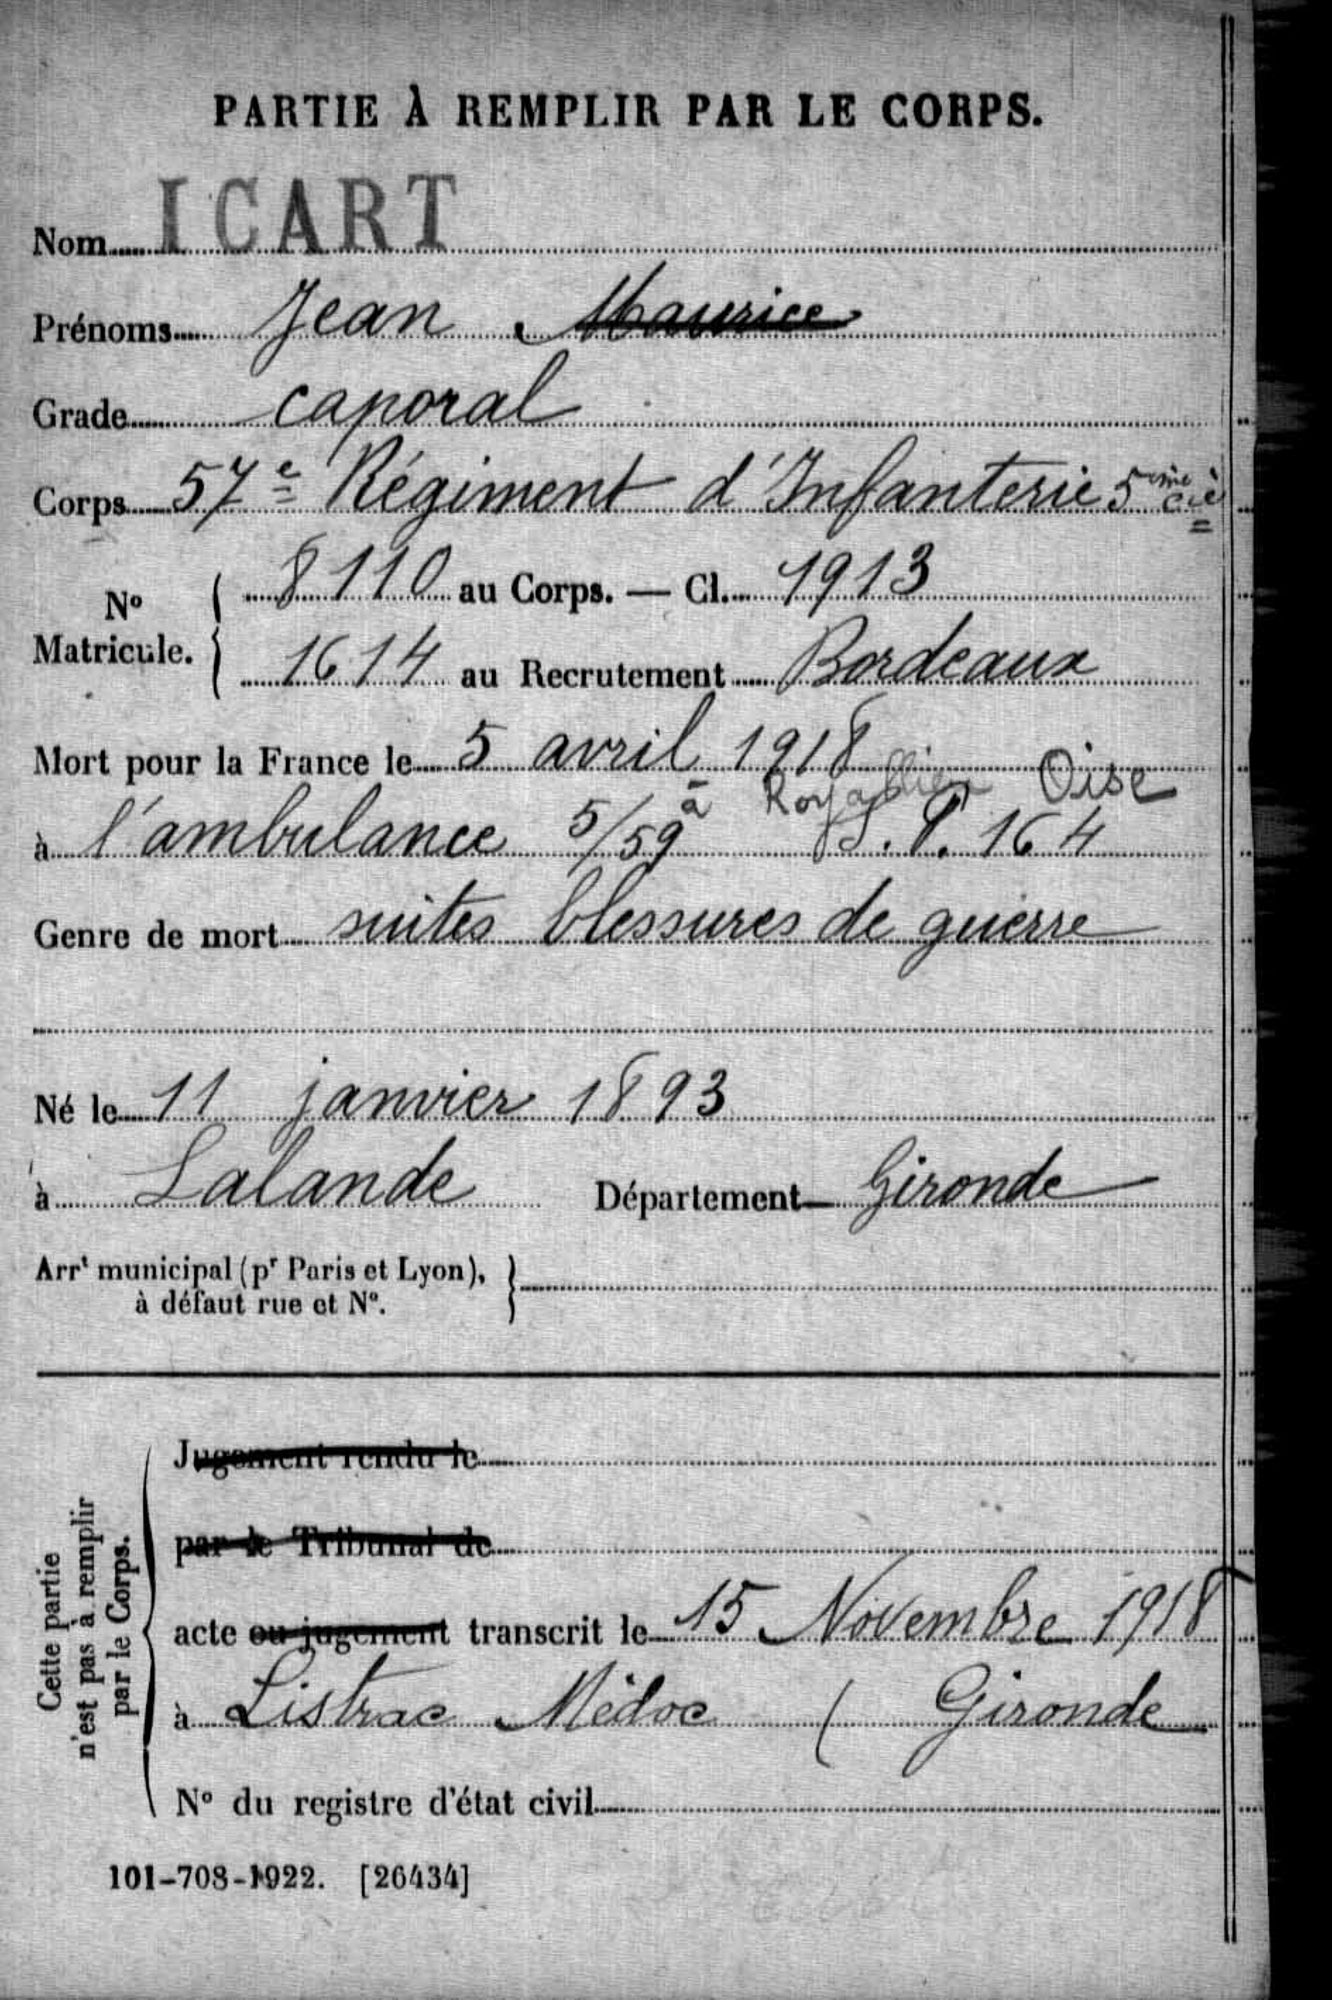 PARTIE À REMPLIR PAR LE CORPS.
Nom ICART
Prénoms Jean Maurice
Grade caporal
Corps 57e Régiment d'Infanterie 5ème Cie
No Matricule. { 8110 au Corps. — Cl. 1913
1614 au Recrutement Bordeaux
Mort pour la France le 5 avril 1918
à Royallieu Oise
à l'ambulance 5/59 S.P. 164
Genre de mort suites blessures de guerre
Né le 11 janvier 1893
à Lalande Département Gironde
Arrt municipal (pr Paris et Lyon), }
à défaut rue et No.
Cette partie
n'est pas à remplir
par le Corps.
Jugement rendu le
par le Tribunal de
acte ou jugement transcrit le 15 Novembre 1918
à Listrac Médoc ( Gironde
No du registre d'état civil
101-708-1922. [26434]